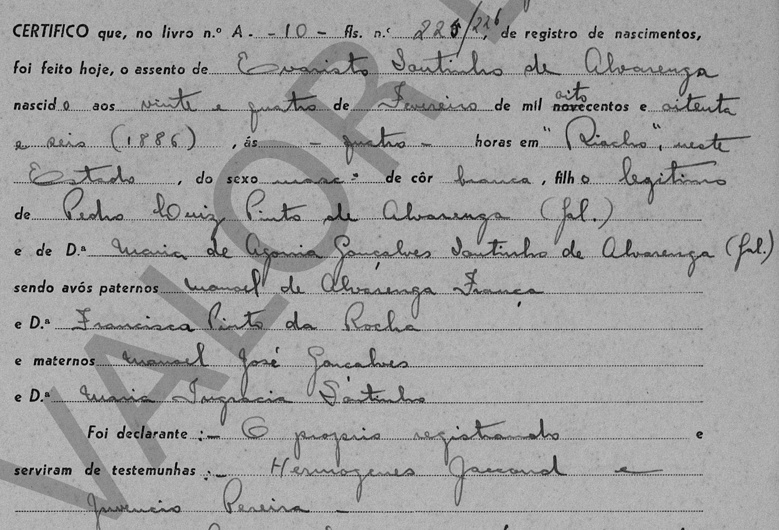 CERTIFICO que, no livro n.º A. - 10 - fls. n.º 225/226, de registro de nascimentos,
foi feito hoje, o assento de Evaristo Soutinho de Alvarenga
nascido aos vinte e quatro de Fevereiro de mil novecentos oito e oitenta
e seis (1886), ás - quatro - horas em "Riacho", neste
Estado, do sexo masc.º de côr branca, filho legitimo
de Pedro Luiz Pinto de Alvarenga (fal.)
e de D.ª Maria de Agonia Gonçalves Soutinho de Alvarenga (fal.)
sendo avós paternos Manoel de Alvarenga França
e D.ª Francisca Pinto da Rocha
e maternos Manoel José Gonçalves
e D.ª Maria Ingracia Soutinho
Foi declarante :- O proprio registrando e
serviram de testemunhas :- Hermogenes Jaccoud e
Juvencio Pereira -
VALOR